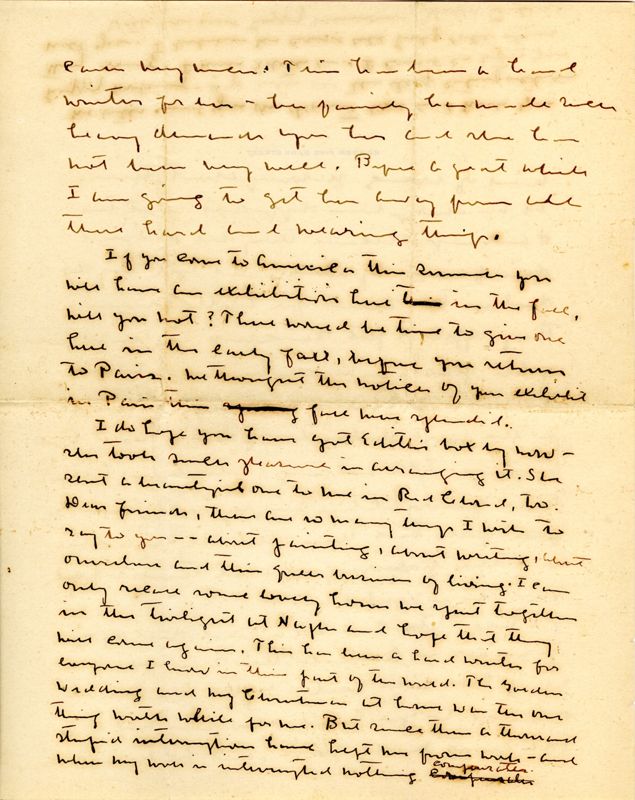 very much. This has been a hard
winter for her – her family has made such
heavy demands upon her and she has
not been very well. Before a great while
I am going to get her away from all
these hard and wearing things.
If you come to America this summer you
will have an exhibition here in the fall,
will you not? There would be time to give one
here in the early fall, before you return
to Paris. We thought the notices of your exhibit
in Paris this fall were splendid.
I do hope you have got Edith's box by now –
she took such pleasure in arranging it. She
sent a beautiful one to me in Red Cloud, too.
Dear friends, there are so many things I wish to
say to you -- about painting, about writing, about
ourselves and this queer business of living. I can
only recall some lovely hours we spent together
in the twilight at Naples and hope that they
will come again. This has been a hard winter for
everyone I know in this part of the world. The Golden
Wedding and my Christmas at home was the one
thing worth while for me. But since then a thousand
stupid interruptions have kept me from work – and
when my work is interrupted nothing compensates